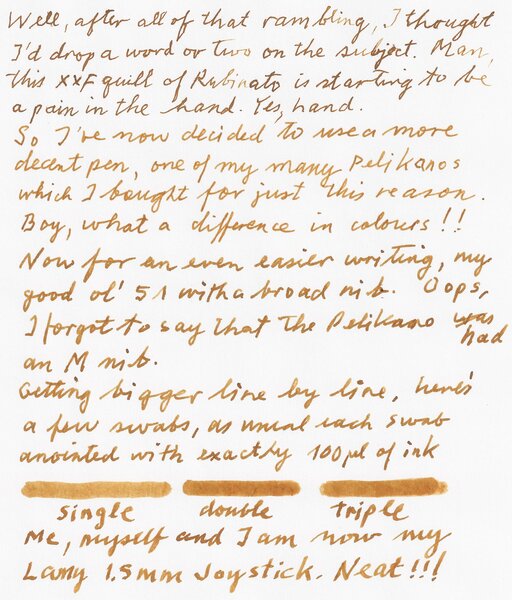 Well, after all of that rambling, I thought
I'd drop a word or two on the subject. Man,
this XXF quill of Rubinato is starting to be
a pain in the hand. Yes, hand.
So I've now decided to use a more
decent pen, one of my many Pelikanos
which I bought for just this reason.
Boy, what a difference in colours!!
Now for an even easier writing, my
good ol' 51 with a broad nib. Oops,
I forgot to say that the Pelikano was
had
an M nib.
Getting bigger line by line, here's
a few swabs, as usual each swab
anointed with exactly 100µl of ink
single double triple
Me, myself and I am now my
Lamy 1.5mm Joystick. Neat!!!